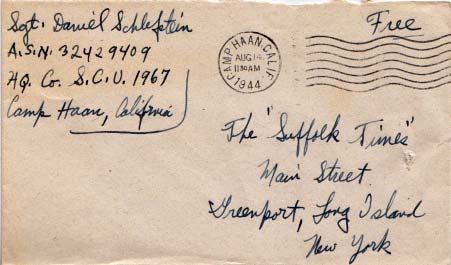 Sgt. Daniel Schlefstein
A.S.N. 32429409
HQ. Co. S.C.U. 1967
Camp Haan, California
CAMP HAAN, CALIF.
AUG 14
11 30 AM
1944
Free
The "Suffolk Times"
Main Street
Greenport, Long Island
New York